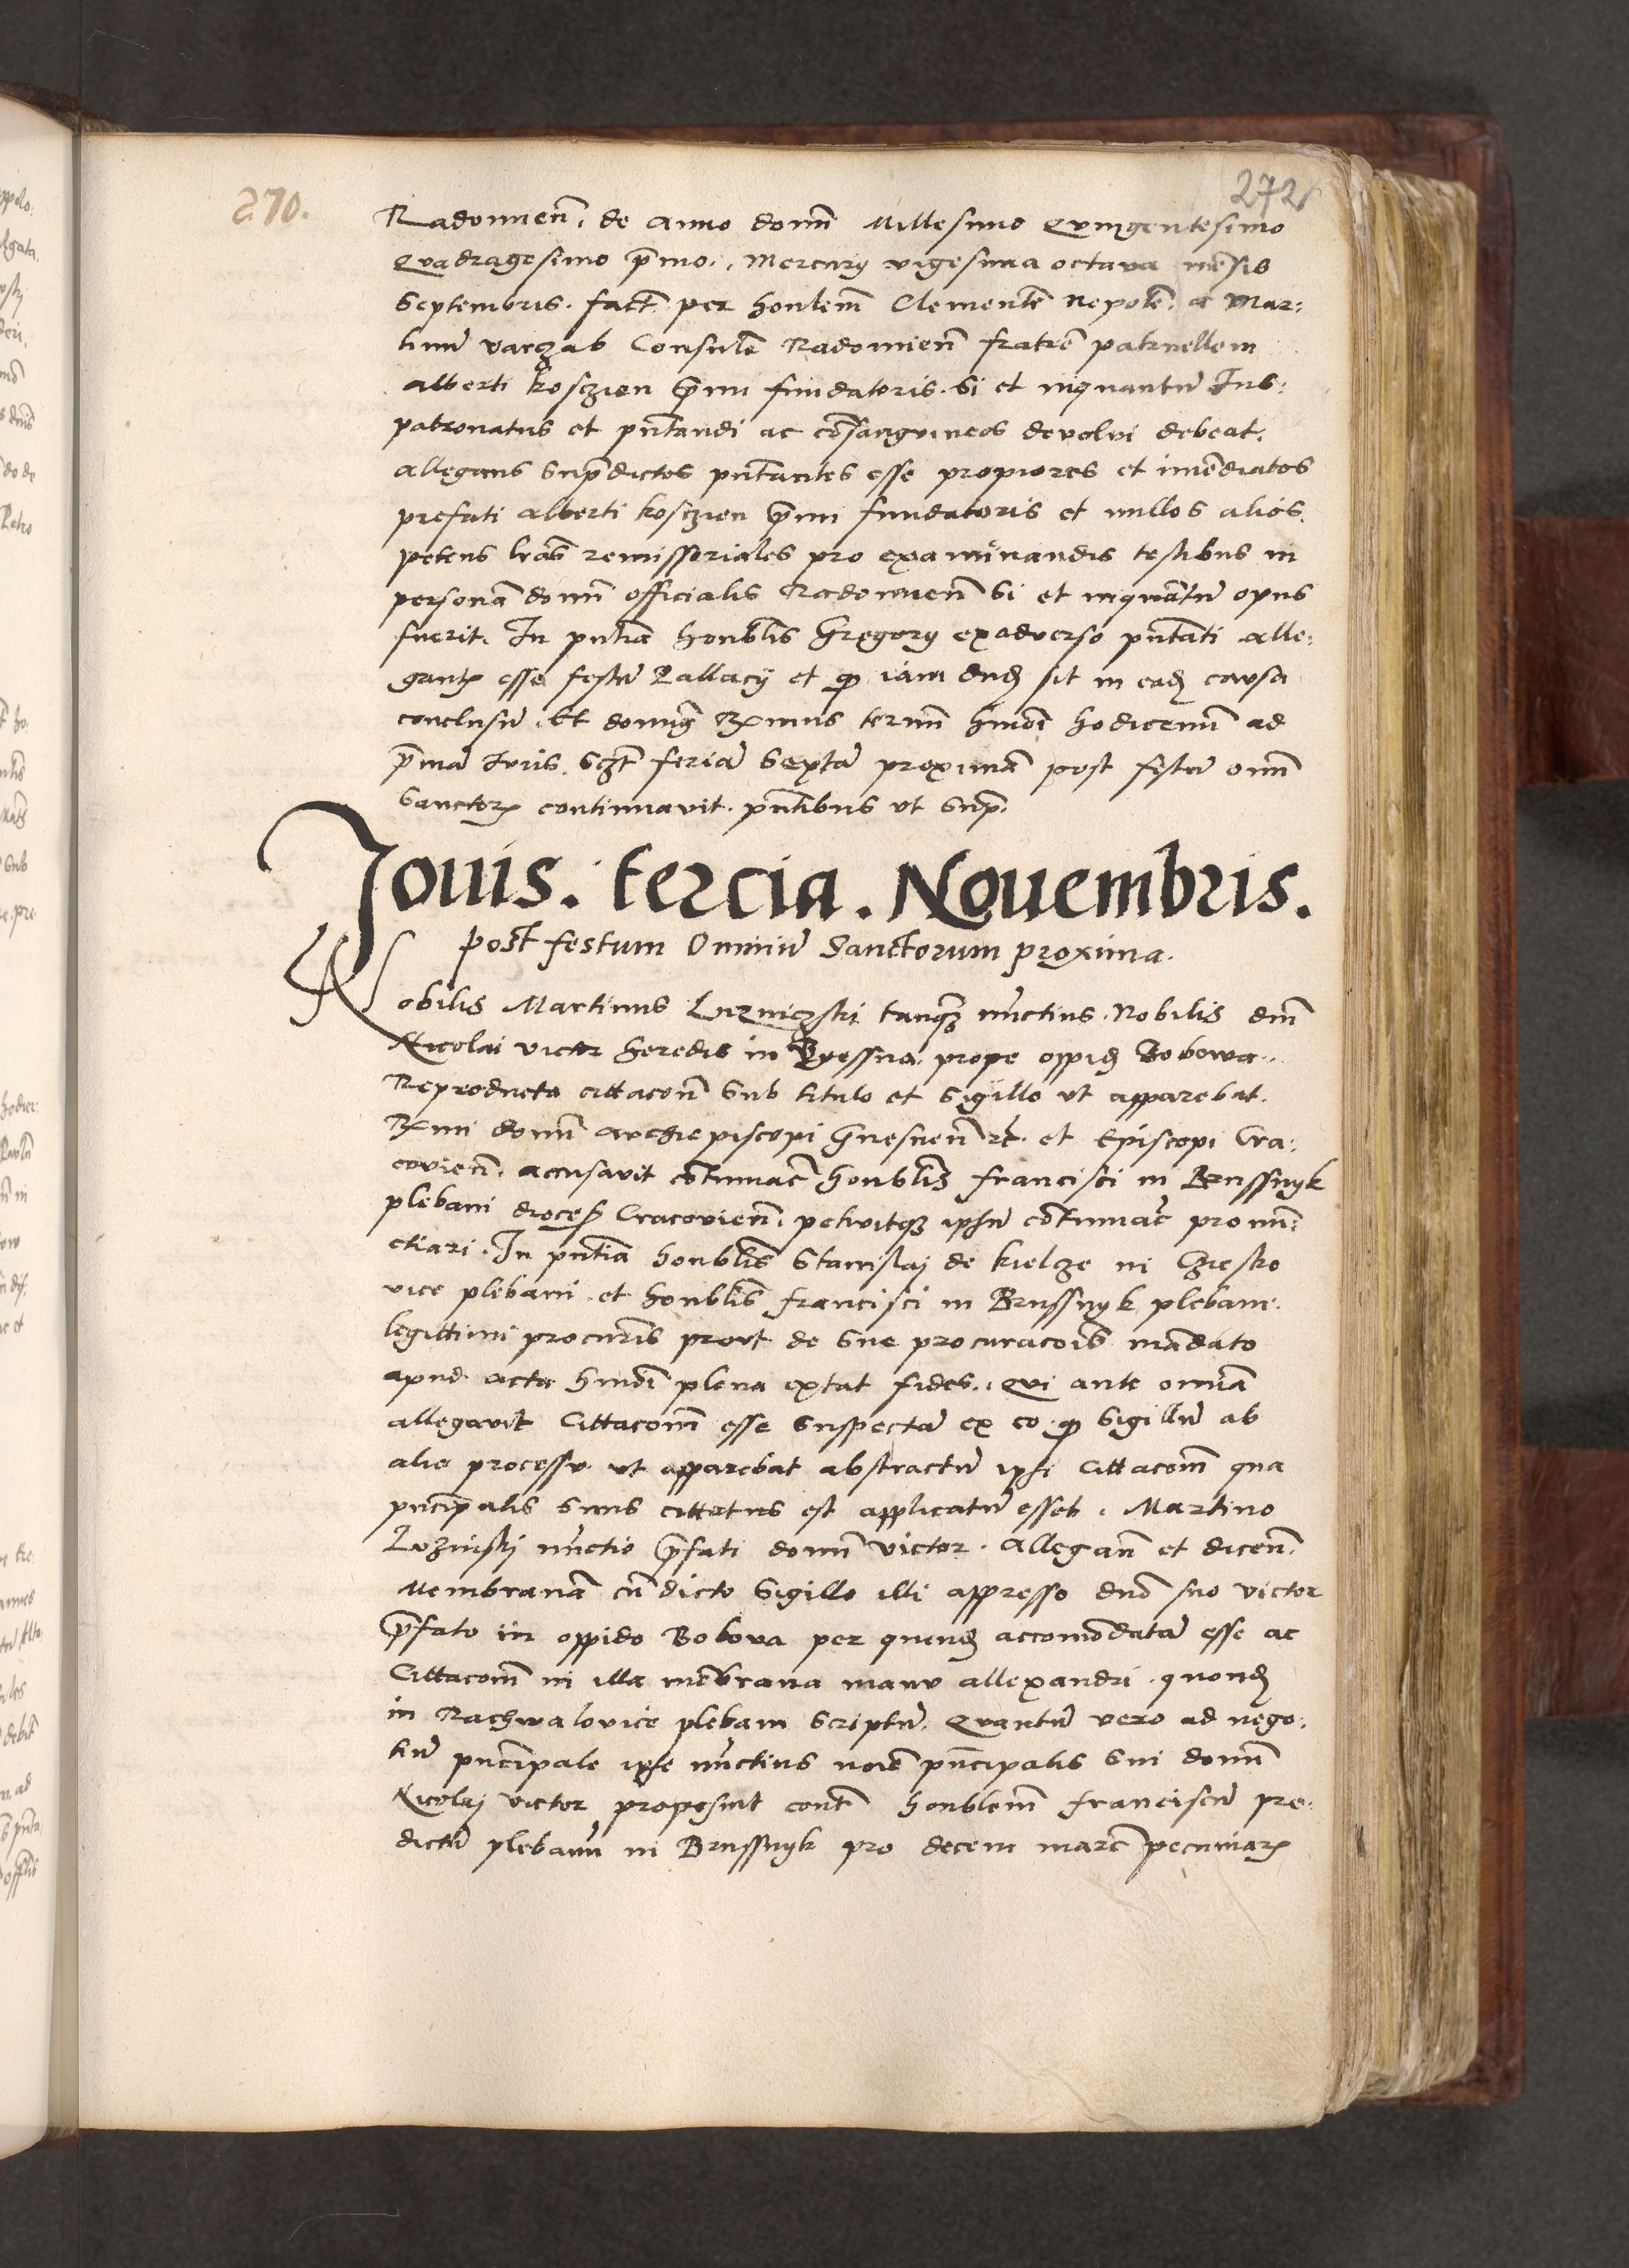 270.
272
Radomień. de Anno domī Millesimo Quingentesimo
Quadragesimo p̄mo., Mercurij vigesima octaua mēsis
Septembris. fact̄ per honlem̄ Clementē Nepotē. ac Mar:
tinū varzab Consulē Radomień fratrē patruellem
Alberti kosczien p̄mi fundatoris. Si et inquantū Jus:
patronatus et pn̄tandi ac cōsanguineos deuolui debeat.
Allegans sup̄dictos pn̄tantes esse propiores et im̄ediatos
prefati Alberti kosczien p̄mi fundatoris et nullos alios.
petens lr̄as remissoriales pro examinandis testibus in
personā domī officialis Radomień Si et inquātū opus
fuerit. In pn̄tia honblis Gregorij exaduerso pn̄tati alle:
gantꝫ esse festū Pallacij et ꝙ iam dudꝫ sit in eadꝫ causa
conclusū. Et domīꝰ Rximus termī hm̄oi hodiernū ad
p̄ma Juris. Sczt̄ feriā Sextā proximā post festū om̄
Sanctorꝝ continuauit. pn̄tibus vt sup̄.
Jouis. tercia. Nouembris.
post festum Omniū Sanctorum proxima.
Nobilis Martinus Luzniczski tanqꝫ nūctius Nobilis dm̄
Nicolai victor heredis in prope oppidꝫ Bobowa..
Reproducta cittacoē Sub titulo et Sigillo vt apparebat.
Rximi domī Archiepiscopi Gnesneń zc. et Episcopi Cra:
couień. accusauit cōtumac̄ honblis francisci in Brussnyk
plebani diocesꝭ Cracouień. petiuitqꝫ ipsū cōtumac̄ pronū:
ctiari. In pn̄tia honblis Stanislaj de kielcze in
vice plebani et honblis francisci in Brussnyk plebani.
legittimi procur̄is prout de sue procuracois mādato
apud acta hm̄oi plena extat fides., Qui ante om̄ia
allegauit Cittacoem̄ esse suspectā ex eo ꝙ Sigillū ab
alio processu vt apparebat abstractū ipsi Cittacom̄ qua
pn̄cipalis suus cittatus est applicatū esset. Martino
Luzinskj nūctio p̄fati domī victor. Allegan̄ et dicen̄.
Membranā cū dicto Sigillo illi appresso dn̄o suo victor
p̄fato in oppido Bobova per quendꝫ accomodatā esse ac
Cittacom̄ in illa mēbrana manu allexandri quondꝫ
in Rachwalovice plebani scriptū. Quantū vero ad nego:
tiū pn̄cipale ipse nūctius noīe pn̄cipalis sui domī
Nicolaj victor proposuit cont̄ honblem̄ franciscū pre:
dictū plebanū in Brussnyk pro decem marc̄ pecuniarꝝ